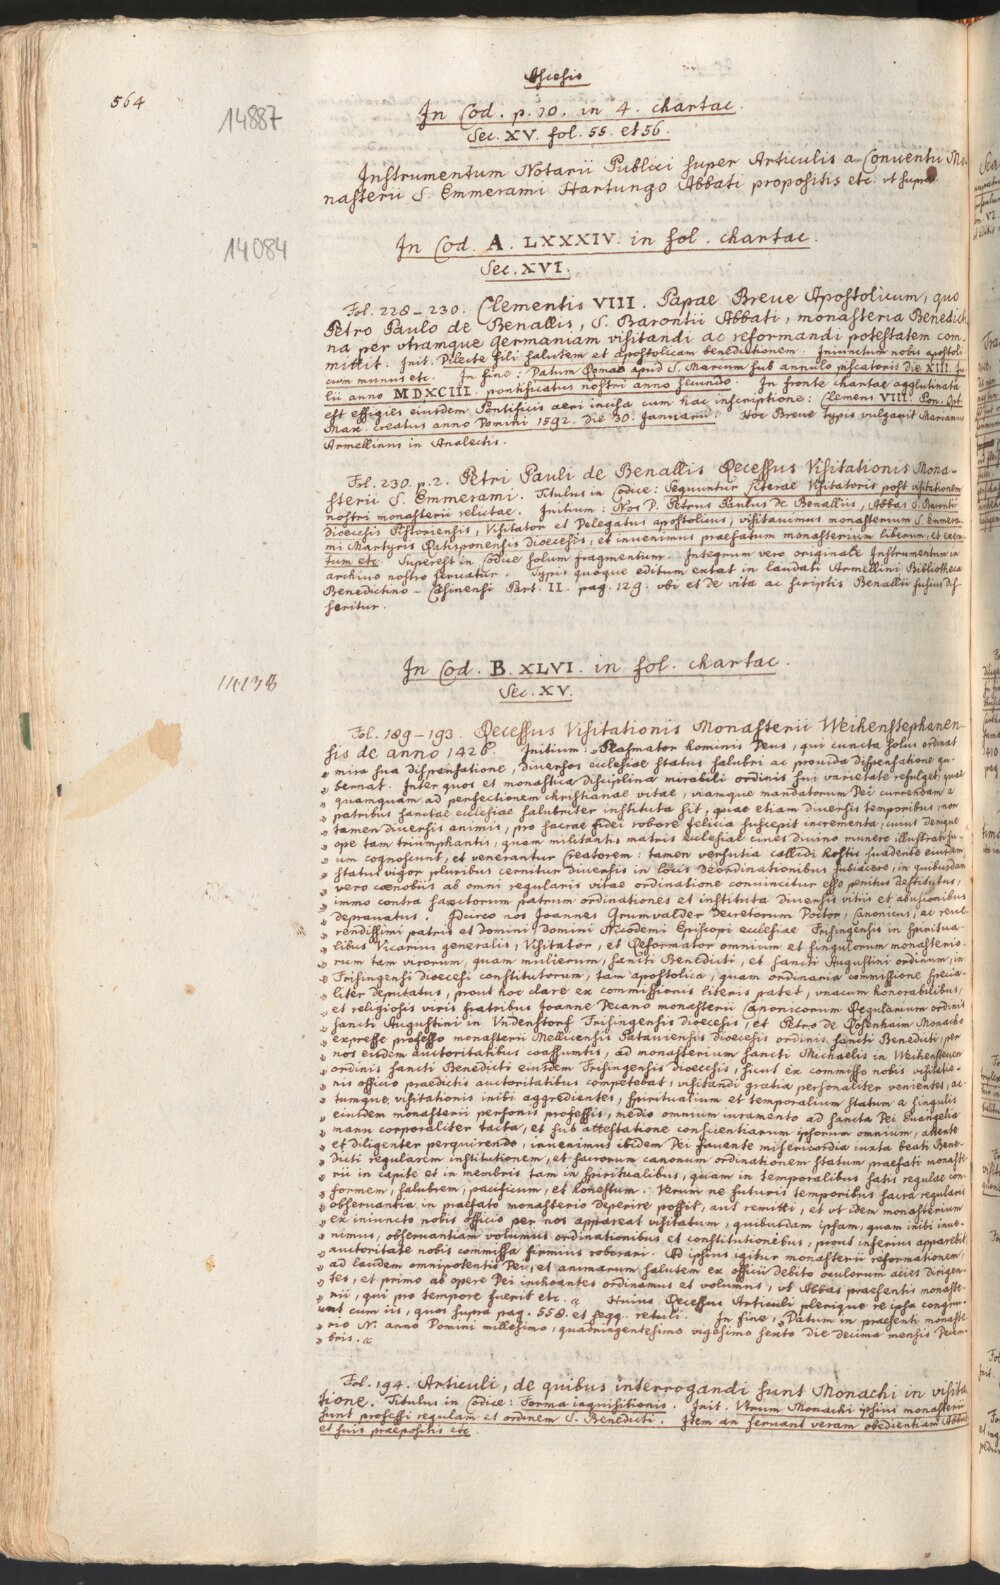 Ascesis
564
14887
In Cod. p. 10. in 4. chartac.
Sec. XV. fol. 55. et 56.
Instrumentum Notarii Publici super Articulis a Conventu Mo-
nasterii S. Emmerami Hartungo Abbati propositis etc. vt supra.
14084
In Cod. A. LXXXIV. in fol. chartac.
Sec. XVI.
Fol. 228-230. Clementis VIII. Papae Breue Apostolicum, quo
Petro Paulo de Benallis, S. Barontii Abbati, monasteria Benedicti-
na per vtramque Germaniam visitandi ac reformandi potestatem com-
mittit. Init. Dilecte fili salutem et apostolicam benedictionem. Iniunctum nobis apostoli-
cum munus etc. In fine: Datum Romae apud S. Marcum sub annulo piscatoris die XIII. Ju-
lii anno MDXCIII. pontificatus nostri anno secundo. In fronte chartae agglutinata
est effigies eiusdem Pontificis aeri incisa cum hac inscriptione: Clemens VIII. Pon. Opt.
Max. creatus anno Domini 1592. die 30. Januarii. Hoc Breve typis vulgavit Marianus
Armellinus in Analectis.
Fol. 230. p. 2. Petri Pauli de Benallis Recessus Visitationis Mona-
sterii S. Emmerami. Titulus in Codice: Sequuntur literae Visitatoris post visitationem
nostri monasterii relictae. Initium: Nos D. Petrus Paulus de Benalliis, Abbas S. Barontii
Dioecesis Pistoriensis, Visitator et Delegatus apostolicus, visitauimus monasterium S. Emmera-
mi Martyris Ratisponensis dioecesis, et inuenimus praefatum monasterium liberum, et exem-
tum etc. Superest in Codice solum fragmentum. Integrum vero originale Instrumentum in
archiuo nostro seruatur. Typis quoque editum extat in laudati Armellini Bibliotheca
Benedictino-Casinensi Part. II. pag. 129. vbi et de vita ac scriptis Benallii fusius dis-
seritur.
14138
In Cod. B. XLVI. in fol. chartac.
Sec. XV.
Fol. 189-193. Recessus Visitationis Monasterii Weihenstephanen-
sis de anno 1426. Initium: „Plasmator hominis Deus, qui cuncta solus ordinat
„ mira sua dispensatione, diuersos ecclesiae status salubri ac prouida dispensatione gu-
„ bernat. Inter quos et monastica disciplina mirabili ordinis sui varietate refulget, quae
„ quamquam ad perfectionem christianae vitae, viamque mandatorum Dei currendam a
„ patribus sanctae ecclesiae salubriter instituta sit, quae etiam diuersis temporibus, non
„ tamen diuersis animis, pro sacrae fidei robore felicia suscepit incrementa, cuius denique
„ ope tam triumphantis, quam militantis matris ecclesiae ciues diuino munere illustrati su-
„ um cognoscunt, et venerantur Creatorem: tamen versutia callidi hostis suadente eiusdem
„ status vigor pluribus cernitur diuersis in locis deordinationibus subiacere, in quibusdam
„ vero coenobiis ab omni regularis vitae ordinatione conuincitur esse penitus destitutus,
„ immo contra sanctorum patrum ordinationes et instituta diuersis vitiis et abusionibus
„ deprauatus. Idcirco nos Joannes Grumvalder Decretorum Doctor, Canonicus, ac reue-
„ rendissimi patris et Domini, Domini Nicodemi Episcopi ecclesiae Frisingensis in spiritua-
„ libus Vicarius generalis, Visitator, et Reformator omnium et singulorum monasterio-
„ rum tam virorum, quam mulierum, sancti Benedicti, et sancti Augustini ordinum, in
„ Frisingensi dioecesi constitutorum, tam apostolica, quam ordinaria commissione specia-
„ liter deputatus, prout hoc clare ex commissionis literis patet, vnacum honorabilibus,
„ et religiosis viris fratribus Joanne Decano monasterii Canonicorum Regularium ordinis
„ sancti Augustini in Vndenstorf Frisingensis dioecesis, et Petro de Rosenhaim Monacho
„ expresse professo monasterii Mellicensis Patauiensis dioecesis ordinis sancti Benedicti, per
„ nos eisdem auctoritatibus coassumtis, ad monasterium sancti Michaelis in Weihensteuen
„ ordinis sancti Benedicti eiusdem Frisingensis dioecesis, sicut ex commisso nobis visitatio-
„ nis officio praedictis auctoritatibus competebat, visitandi gratia personaliter venientes, ac-
„ tumque visitationis inibi aggredientes, spiritualium et temporalium statum a singulis
„ eiusdem monasterii personis professis, medio omnium iuramento ad sancta Dei Euangelia
„ manu corporaliter tacta, et sub attestatione conscientiarum ipsorum omnium, attente
„ et diligenter perquirendo, inuenimus ibidem Dei fauente misericordia iuxta beati Bene-
„ dicti regularem institutionem, et sacrorum canonum ordinationem statum praefati monaste-
„ rii in capite et in membris tam in spiritualibus, quam in temporalibus satis regulae con-
„ formem, salubrem, pacificum, et honestum. Verum ne futuris temporibus sacra regularis
„ obseruantia in praefato monasterio deperire possit, aut remitti, et vt idem monasterium
„ ex iniuncto nobis officio per nos appareat visitatum, quibusdam ipsam, quam inibi inue-
„ nimus, obseruantiam volumus ordinationibus et constitutionibus, prout inferius apparebit,
„ auctoritate nobis commissa firmius roborari. Ad ipsius igitur monasterii reformationem,
„ ad laudem omnipotentis Dei, et animarum salutem ex officii debito oculorum acies dirigen-
„ tes, et primo ab opere Dei inchoantes ordinamus et volumus, vt Abbas praesentis monaste-
„ rii, qui pro tempore fuerit etc. „ Huius Recessus Articuli plerique re ipsa congru-
unt cum iis, quos supra pag. 558. et seqq. retuli. In fine „Datum in praesenti monaste-
„ rio N. anno Domini millesimo, quadringentesimo vigesimo sexto die decima mensis Decem-
„ bris. „
Fol. 194. Articuli, de quibus interrogandi sunt Monachi in visita-
tione. Titulus in Codice: Forma inquisitionis. Init. Utrum Monachi ipsius monasterii
sunt professi regulam et ordinem S. Benedicti. Item an seruant veram obedientiam Abbati
et suis praepositis etc.